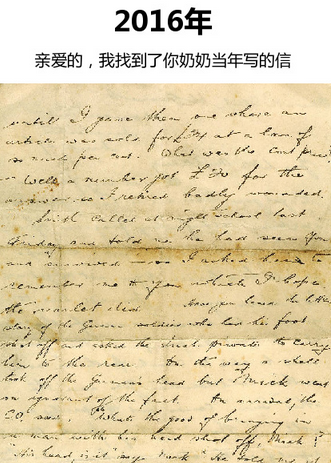 2016年
亲爱的，我找到了你奶奶当年写的信
until I gave them one where an
article was sold for at a loss of
so much per cent. What was the cost price?
Well a number got for the
answer I retired badly wounded.
Smith called at night school last
Friday and told me he had seen you
and I asked him to
remember me to you which I hope
the varlet did. Have you heard the latest
story of the German soldier who has his foot
shot off and asked the Irish private to carry
him to the rear. On the way a shell
took off the German's head but Mick was
in ignorant of the fact. On arrival, the
C.O. said "What's the good of bringing in
a man with his head shot off, Mick?
His head, is it" says Mick "He told me it